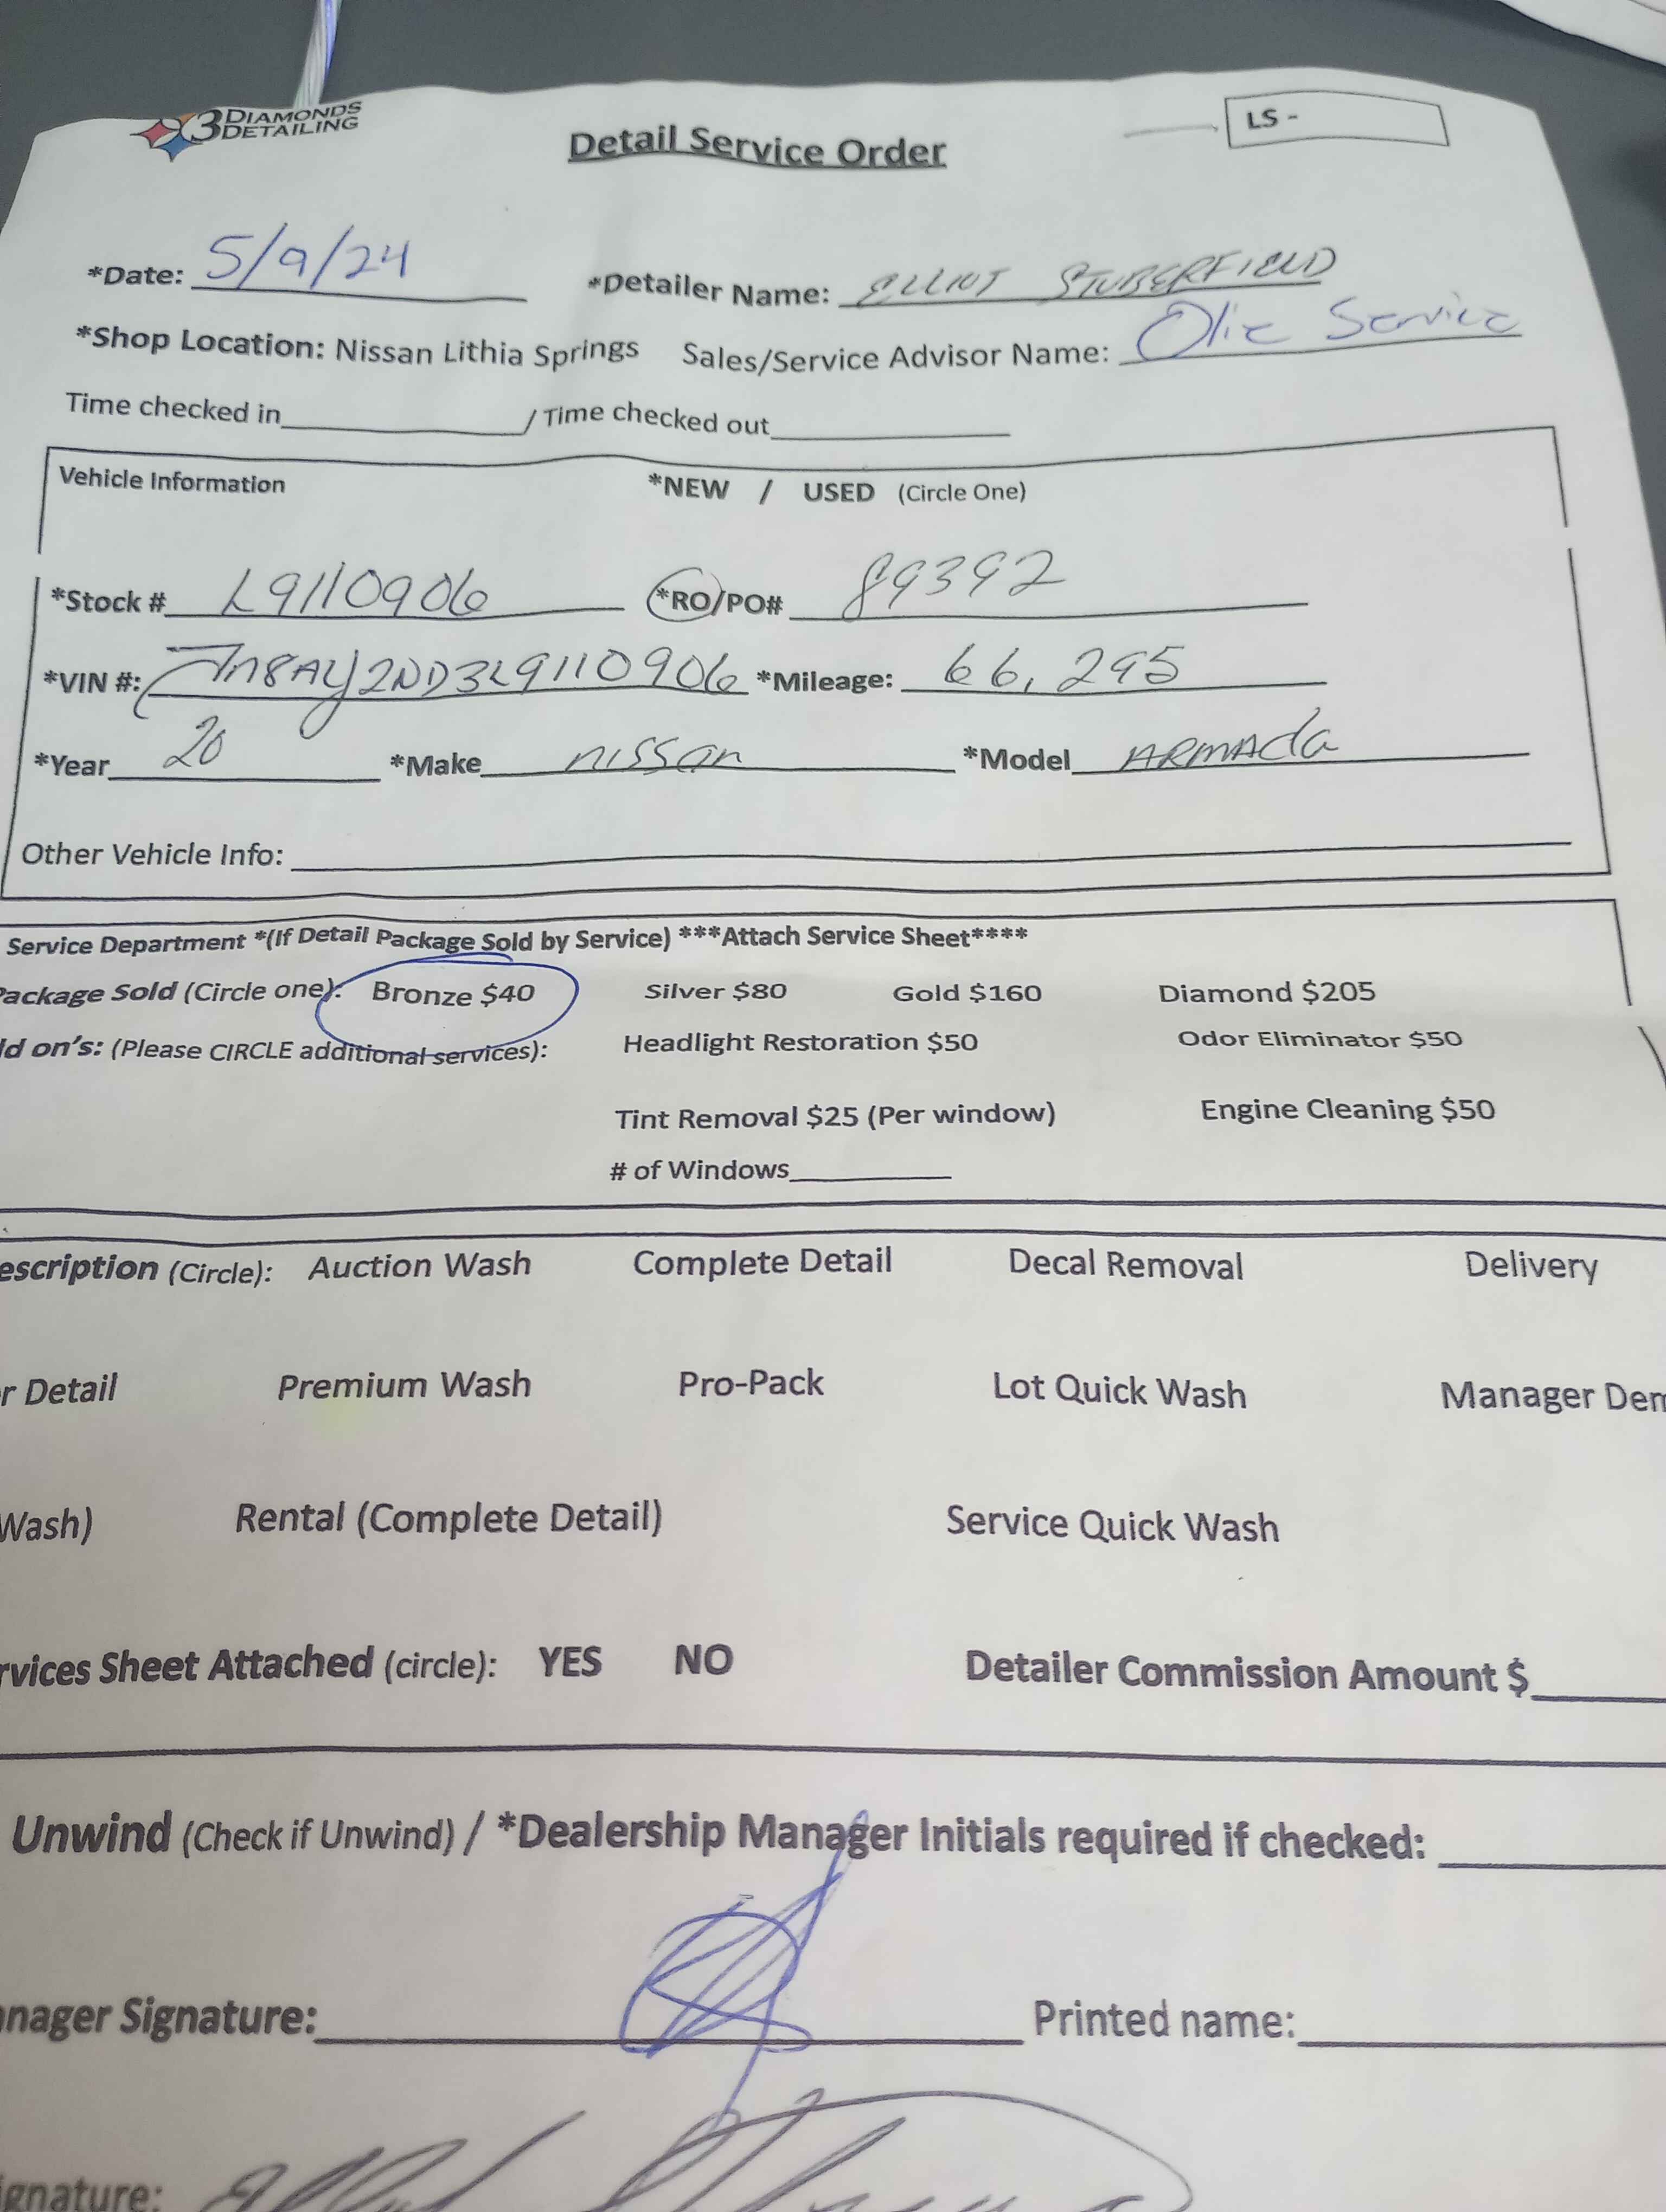 3 DIAMONDS DETAILING
Detail Service Order
LS -
*Date: 5/9/24 *Detailer Name: ELLIOT STUBERFIELD
*Shop Location: Nissan Lithia Springs Sales/Service Advisor Name: Olie Service
Time checked in / Time checked out
Vehicle Information *NEW / USED (Circle One)
*Stock # L9110906 *RO/PO# 89392
*VIN #: JN8AY2ND3L9110906 *Mileage: 66,295
*Year 20 *Make nissan *Model ARMAda
Other Vehicle Info:
Service Department *(If Detail Package Sold by Service) ***Attach Service Sheet****
Package Sold (Circle one): Bronze $40 Silver $80 Gold $160 Diamond $205
dd on's: (Please CIRCLE additional services): Headlight Restoration $50 Odor Eliminator $50
Tint Removal $25 (Per window) Engine Cleaning $50
# of Windows
escription (Circle): Auction Wash Complete Detail Decal Removal Delivery
r Detail Premium Wash Pro-Pack Lot Quick Wash Manager Dem
Wash) Rental (Complete Detail) Service Quick Wash
rvices Sheet Attached (circle): YES NO Detailer Commission Amount $
Unwind (Check if Unwind) / *Dealership Manager Initials required if checked:
anager Signature: Printed name:
ignature: